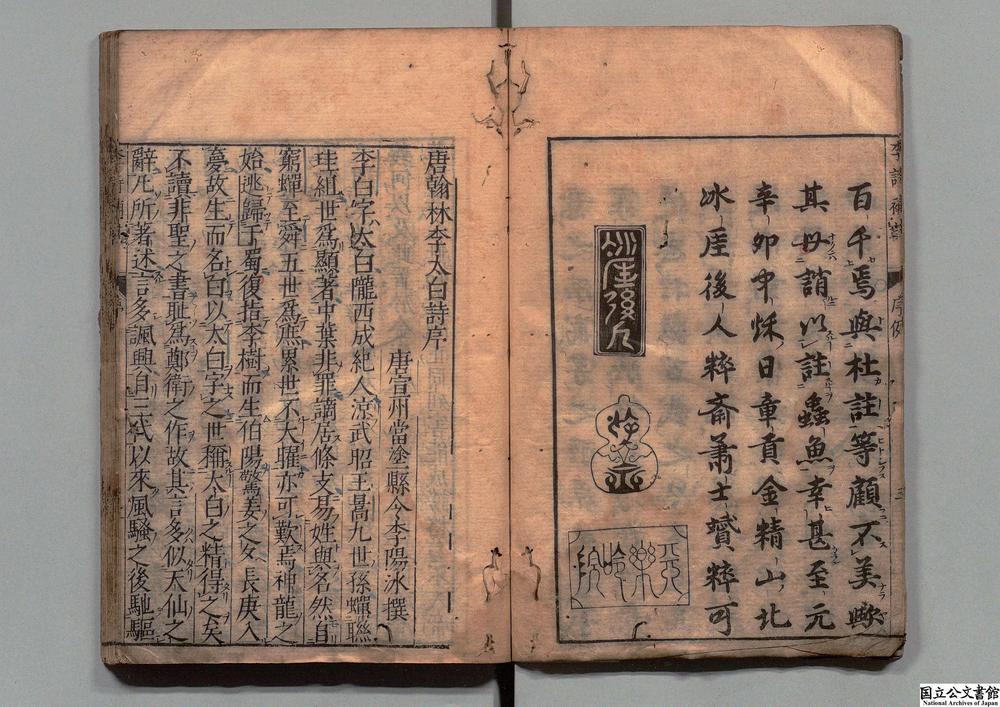 百千焉與杜註等顧不美歟
其毋誚以註蟲魚幸甚至元
辛卯中秌日章貢金精山北
冰厓後人粹斎蕭士贇粹可
冰厓後人
粹斎
唐翰林李太白詩序
唐宣州當塗縣令李陽冰撰
李白字太白隴西成紀人涼武昭王暠九世孫蟬聯
珪組世爲顯著中葉非罪謫居條支易姓與名然自
窮蟬至舜五世爲庶累世不大曜亦可歎焉神龍之
始逃歸于蜀復指李樹而生伯陽驚姜之夕長庚入
夢故生而名白以太白字之世稱太白之精得之矣
不讀非聖之書耻爲鄭衛之作故其言多似天仙之
辭凡所著述言多諷興自三代以來風騷之後馳驅
李詩補註
序例
国立公文書館
National Archives of Japan